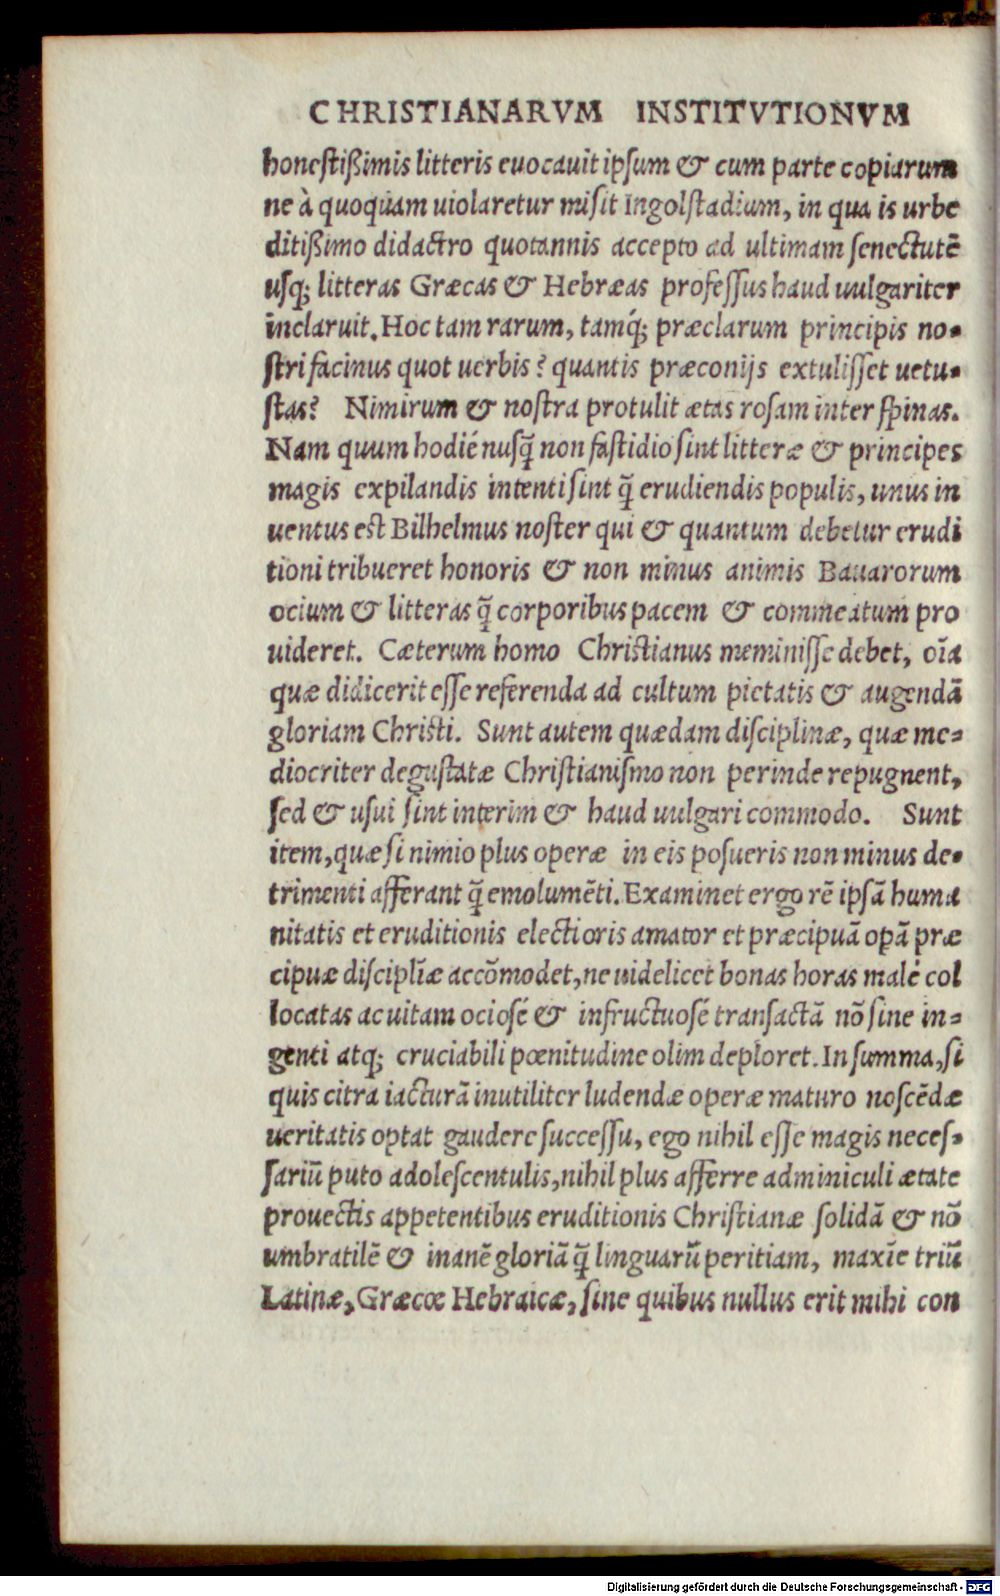 CHRISTIANARVM INSTITVTIONVM
honestißimis litteris euocauit ipsum & cum parte copiarum
ne à quoquam uiolaretur misit Ingolstadium, in qua is urbe
ditißimo didactro quotannis accepto ad ultimam senectutē
usq; litteras Græcas & Hebræas professus haud uulgariter
inclaruit. Hoc tam rarum, tamq́; præclarum principis no-
stri facinus quot uerbis? quantis præconijs extulisset uetu-
stas? Nimirum & nostra protulit ætas rosam inter spinas.
Nam quum hodié nusq̃ non fastidio sint litteræ & principes
magis expilandis intenti sint q̃ erudiendis populis, unus in
uentus est Bilhelmus noster qui & quantum debetur erudi
tioni tribueret honoris & non minus animis Bauarorum
ocium & litteras q̃ corporibus pacem & commeatum pro
uideret. Cæterum homo Christianus meminisse debet, oīa
quæ didicerit esse referenda ad cultum pietatis & augendā
gloriam Christi. Sunt autem quædam disciplinæ, quæ me-
diocriter degustatæ Christianismo non perinde repugnent,
sed & usui sint interim & haud uulgari commodo. Sunt
item, quæ si nimio plus operæ in eis posueris non minus de-
trimenti afferant q̃ emolumēti. Examinet ergo rē ipsā huma
nitatis et eruditionis electioris amator et præcipuā opā præ
cipuæ disciplīæ accōmodet, ne uidelicet bonas horas malé col
locatas ac uitam ociosé & infructuosé transactā nō sine in-
genti atq; cruciabili pœnitudine olim deploret. In summa, si
quis citra iacturā inutiliter ludendæ operæ maturo noscēdæ
ueritatis optat gaudere successu, ego nihil esse magis neces-
sariū puto adolescentulis, nihil plus afferre adminiculi ætate
prouectis appetentibus eruditionis Christianæ solidā & nō
umbratilē & inanē gloriā q̃ linguarū peritiam, maxīe triū
Latinæ, Græcœ Hebraicæ, sine quibus nullus erit mihi con
Digitalisierung gefördert durch die Deutsche Forschungsgemeinschaft - DFG